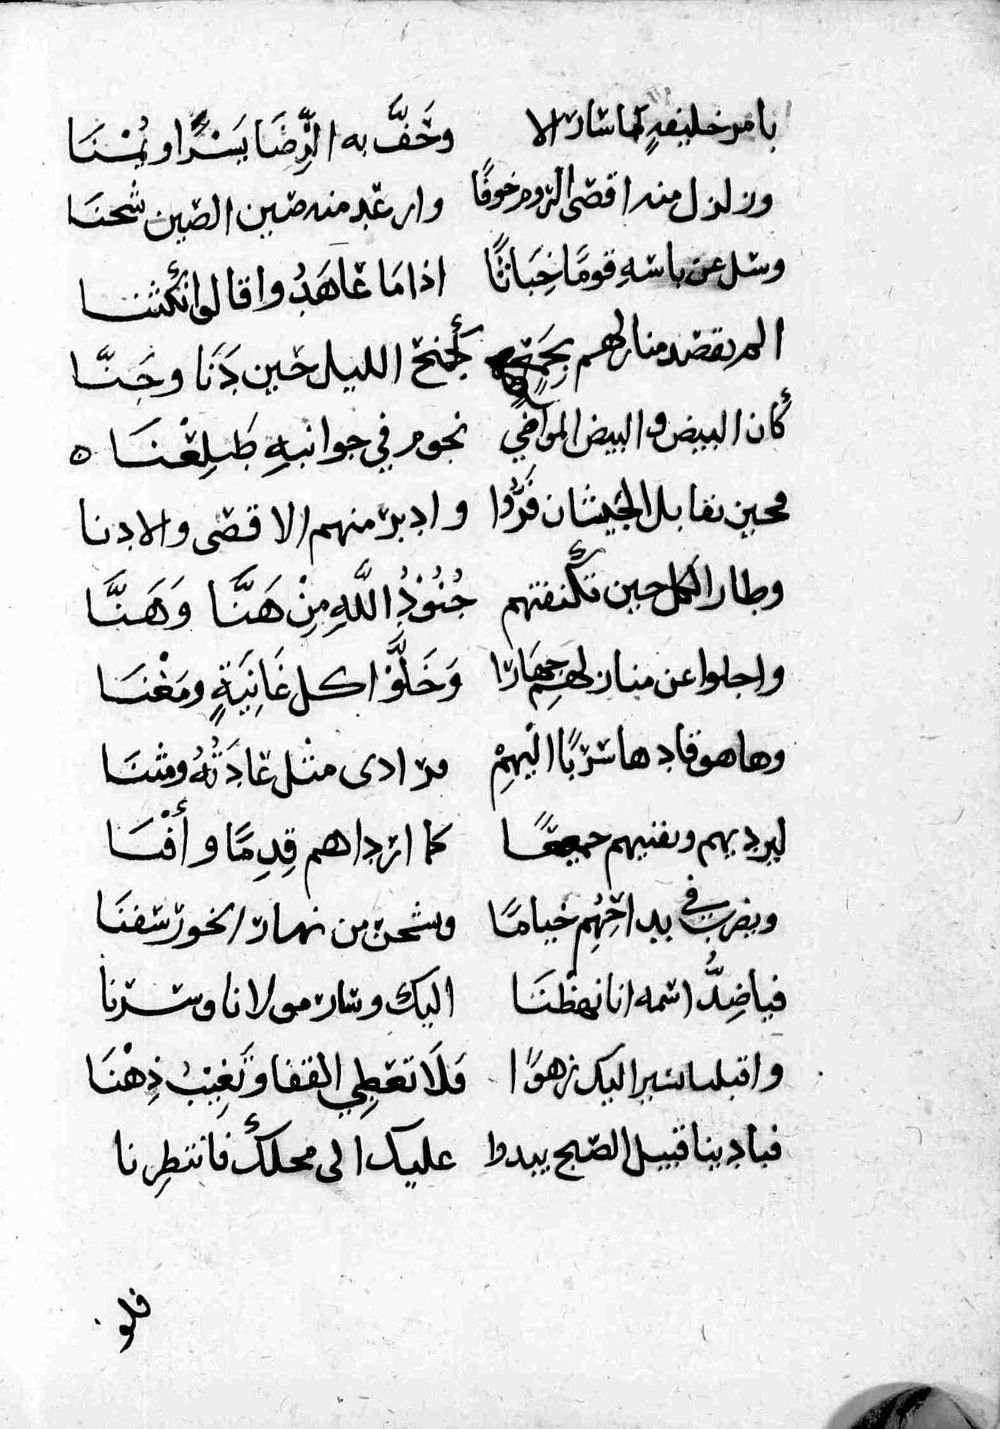 بامر خليفةٍ كما سار الا وحَفَّ به الرِّضَا يَسْرًا ويُمْنَا
وزلزل منه اقصى الروم خوفًا وارعد منه صين الصين شحنَا
وسل عن باسهِ قومًا خِبَاثًا اذا مَا عَاهَدُوا قالوا نكثنا
الم يقصد منازلهم بِجَمْعٍ كجنح الليل حين دَنَا وجَنَّا
كأن البيض والبيض المواضي نجوم في جوانبهِ طَلِعْنَا ه
فحين تقابل الجيشان فَرُّوا وادبر منهم الاقصى والادنا
وطار الكل حين تكنفتهم جُنُوْدُ اللَّهِ مِنْ هَنَّا وَهَنَّا
واجلوا عن منازلهم جِهَارًا وَخَلَّوْا كل غَانِيَةٍ ومَغْنَا
وها هو قادها سربًا اليْهِمْ فرادى مثل عَادَتُهُ ومثنَا
ليرديهم ويفنيهم جميعًا كما ارداهم قِدِمًا وأفْنَا
ويضرب في بيداحِهُم خيامًا وشحن من نهار الخور سفنَا
فياضِدُّ اسمه انا نهظْنَا اليك وسار مولانا وسرنا
واقبلنا نسير اليك زهوًا فَلَا تعطِي القفا وتَغِيْبُ ذِهْنَا
فبادينا قبيل الصبح يبدوا عليك الى محلك فانتظِرنا
فلو